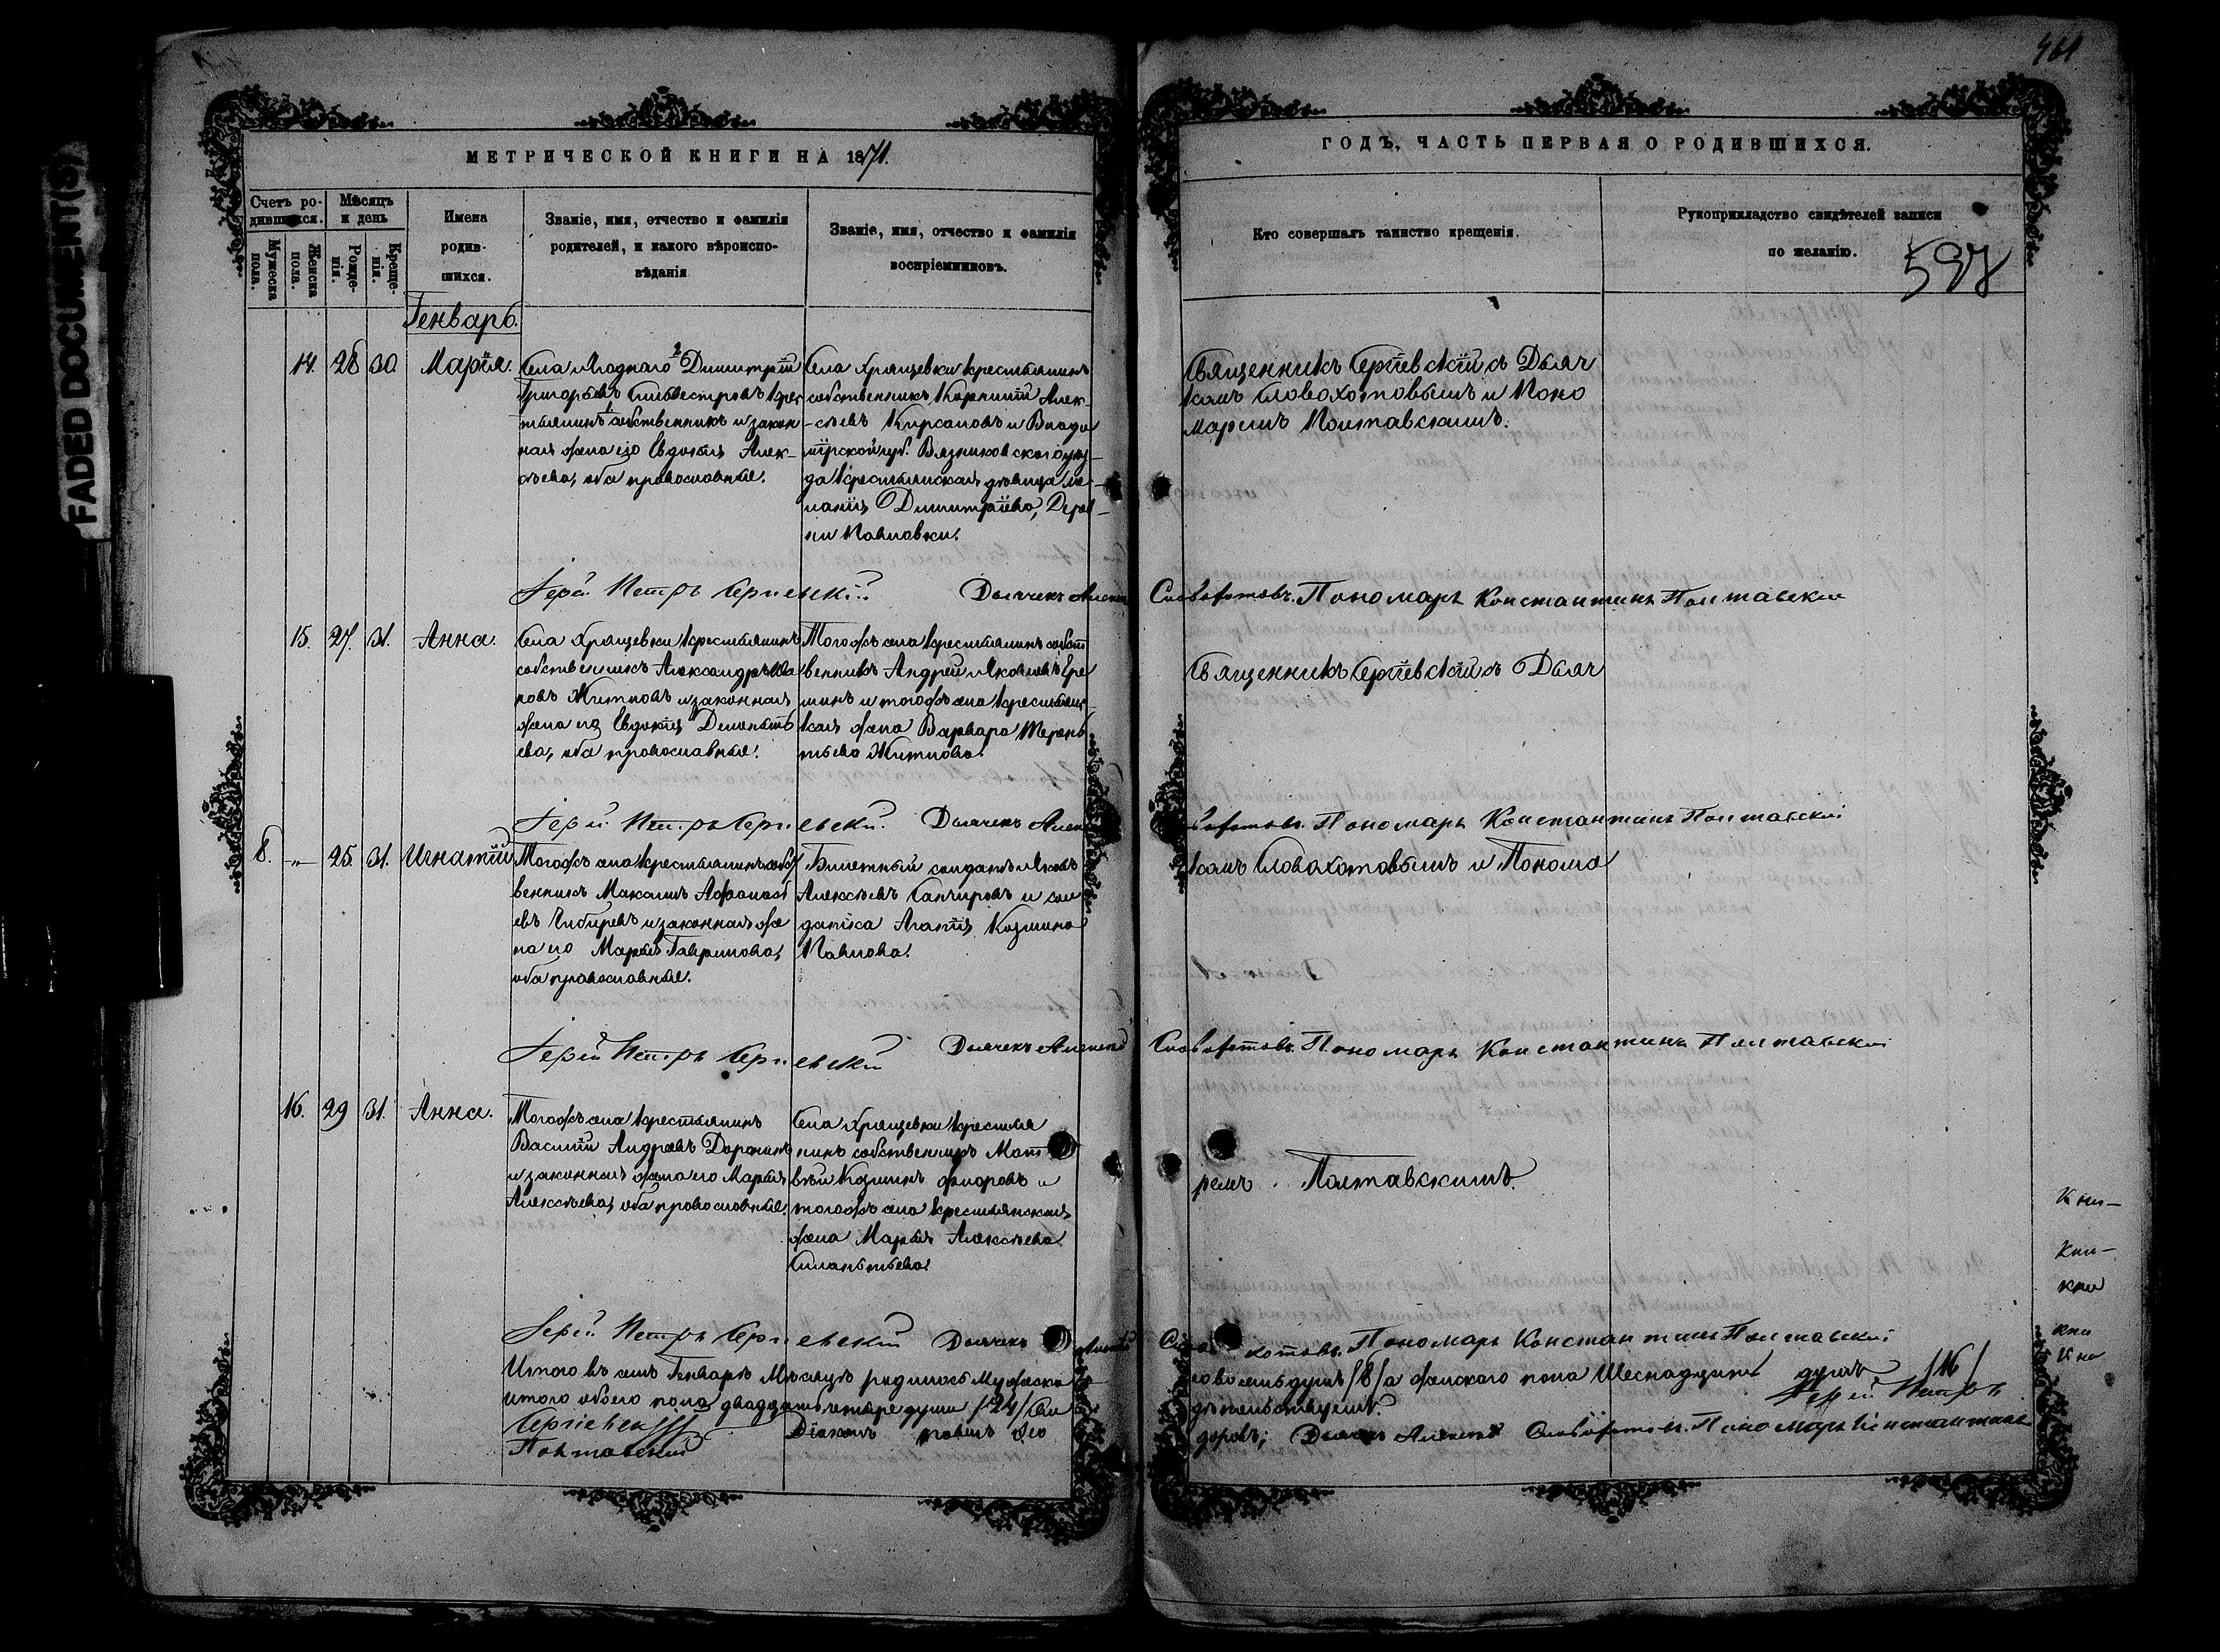 FADED DOCUMENT(S)
461
МЕТРИЧЕСКОЙ КНИГИ НА 1871.
ГОДЪ, ЧАСТЬ ПЕРВАЯ О РОДИВШИХСЯ.
Счетъ ро-
дившихся.
Мужеска
пола.
Женска
пола.
Мѣсяцъ
и день
Рожде-
нія.
Креще-
нія.
Имена
родив-
шихся.
Званіе, имя, отчество и фамилія
родителей, и какого вѣроиспо-
вѣданія
Званіе, имя, отчество и фамилія
воспріемниковъ.
Кто совершалъ таинство крещенія.
Рукоприкладство свидѣтелей записи
по желанію.
597
Генварь.
14. 28 30. Марія.
Села Димитрій
Григорьевъ Сильвестровъ крес
тьянинъ собственникъ и закон
ная жена его Евдокія Алек-
сѣева, оба православные.
Села Хрящевки крестьянинъ
собственникъ Корнилій Алек-
-сѣевъ Кирсановъ и Влади
мірской губ. Вязниковскаго уѣз-
да крестьянская дѣвица Ме
ланія Димитріева, Дерев-
ни Павловки.
Священникъ Сергіевскій съ Дьяч
комъ Словохотовымъ и Поно
маремъ Полтавскимъ.
Іерей Петръ Сергіевскій. Дьячекъ Алексѣй Словохотовъ. Пономарь Константинъ Полтавскій
15. 27. 31. Анна.
Села Хрящевки крестьянинъ
собственникъ Александръ Ива
новъ Житловъ и законная
жена его Евдокія Дементь
ева, оба православные.
Тогожъ села крестьянинъ собст
венникъ Андрей Яковлевъ Ере
минъ и тогожъ села крестьянс
кая жена Варвара Терень
тьева Житлова.
Священникъ Сергіевскій съ Дьяч
Іерей Петръ Сергіевскій. Дьячекъ Пономарь Константинъ Полтавскій
8. „ 25 31. Игнатій
Тогожъ села крестьянинъ собст
венникъ Максимъ Афанась
евъ Чибиревъ и законная же
на его Марья Гаврилова,
оба православные.
Билетный солдатъ Яковъ
Алексѣевъ и сол
датка Агапія Козмина
Павлова.
комъ Словохотовымъ и Понома
Іерей Петръ Сергіевскій Дьячекъ Алексѣй Словохотовъ. Пономарь Константинъ Полтавскій
16. 29 31. Анна.
Тогожъ села крестьянинъ
Василій Андреевъ Доронинъ
и законная жена его Марья
Алексѣева, оба православные.
Села Хрящевки крестья
нинъ собственникъ Мат
вѣй Козминъ Флоровъ и
тогожъ села крестьянская
жена Марья Алексѣева
Силантьева.
ремъ Полтавскимъ.
Іерей Петръ Сергіевскій Дьячекъ Пономарь Константинъ Полтавскій
Итого въ семъ Генварѣ Мѣсяцѣ родилось Мужеска
го восемь душъ /8/ а женского пола Шеснадцать душъ /16/
итого обоего пола двадцать четыре души /24/ Сви
дѣтельствуемъ. Іерей Петръ
Сергіевскій Діаконъ Павелъ Фео
доровъ; Дьячекъ Алексѣй Словохотовъ. Пономарь Константинъ
Полтавскій